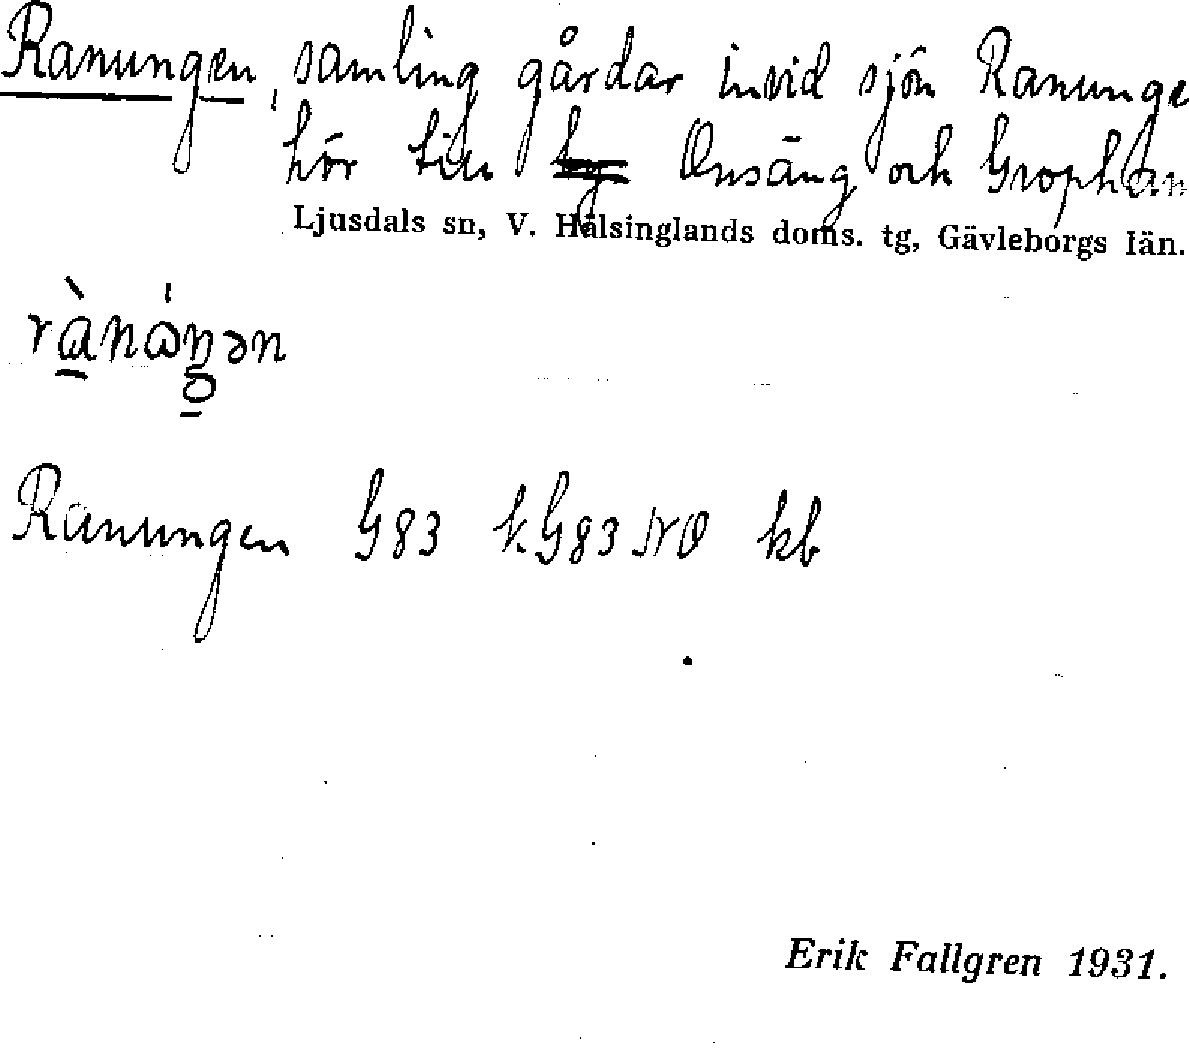 Ranungen, samling gårdar invid sjön Ranunge
hör till by Onsäng och Grophan
Ljusdals sn, V. Hälsinglands doms. tg, Gävleborgs län.
Ranungen G83 k.G83NO kb
Erik Fallgren 1931.